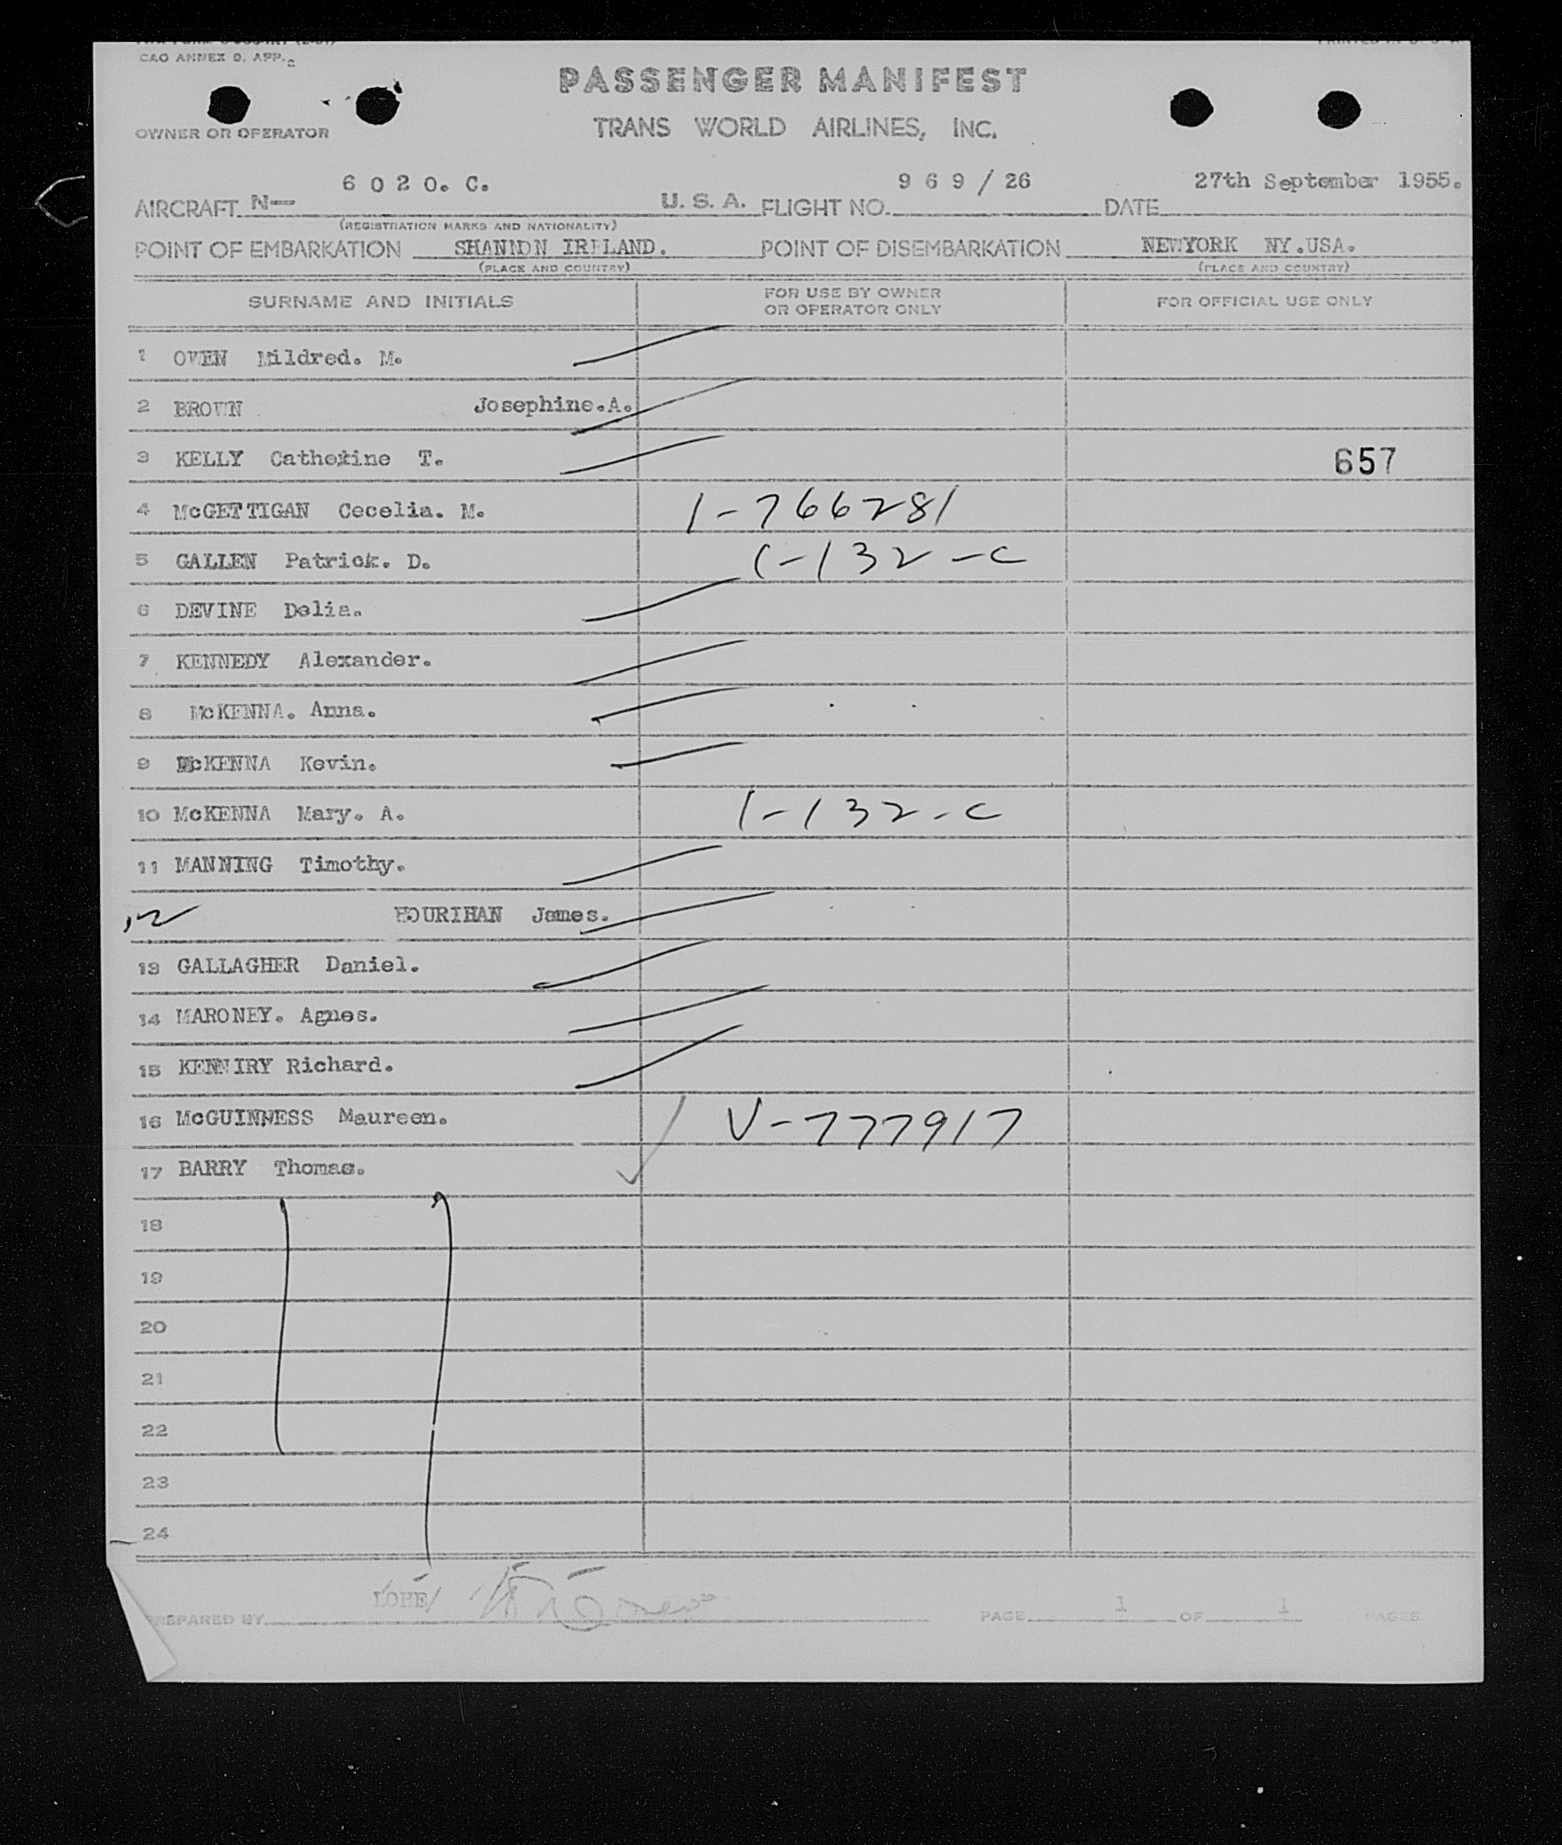 CAO ANNEX 9, APP. 2
PASSENGER MANIFEST
OWNER OR OPERATOR
TRANS WORLD AIRLINES, INC.
AIRCRAFT N— 6020. C. U. S. A. FLIGHT NO. 969/26 DATE 27th September 1955.
(REGISTRATION MARKS AND NATIONALITY)
POINT OF EMBARKATION SHANNON IRELAND. POINT OF DISEMBARKATION NEWYORK NY.USA.
(PLACE AND COUNTRY) (PLACE AND COUNTRY)
SURNAME AND INITIALS FOR USE BY OWNER OR OPERATOR ONLY FOR OFFICIAL USE ONLY
1 OVEN Mildred. M.
2 BROWN Josephine.A.
3 KELLY Catherine T. 657
4 McGETTIGAN Cecelia. M. 1-766281
5 GALLEN Patrick. D. 1-132-C
6 DEVINE Delia.
7 KENNEDY Alexander.
8 McKENNA. Anna.
9 McKENNA Kevin.
10 McKENNA Mary. A. 1-132-C
11 MANNING Timothy.
12 HOURIHAN James.
13 GALLAGHER Daniel.
14 MARONEY. Agnes.
15 KENNIRY Richard.
16 McGUINNESS Maureen. V-777917
17 BARRY Thomas.
18
19
20
21
22
23
24
PREPARED BY PAGE 1 OF 1 PAGES